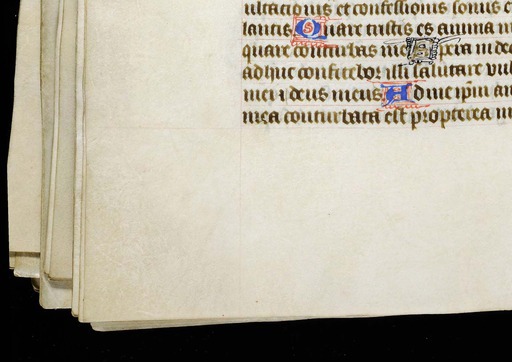 ultacionis et confessionis sonus e
lantis Quare tristis es anima m
quare conturbas me Spera in de
adhuc confitebor illi salutare vul
mei & deus meus Ad me ipm an
mea conturbata est propterea m